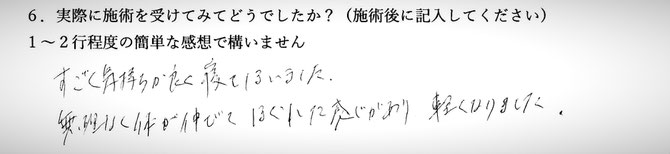 6．実際に施術を受けてみてどうでしたか？（施術後に記入してください）
1～2行程度の簡単な感想で構いません
すごく気持ちが良く寝てしまいました。
無理なく体が伸びてほぐれた感じがあり 軽くなりました。